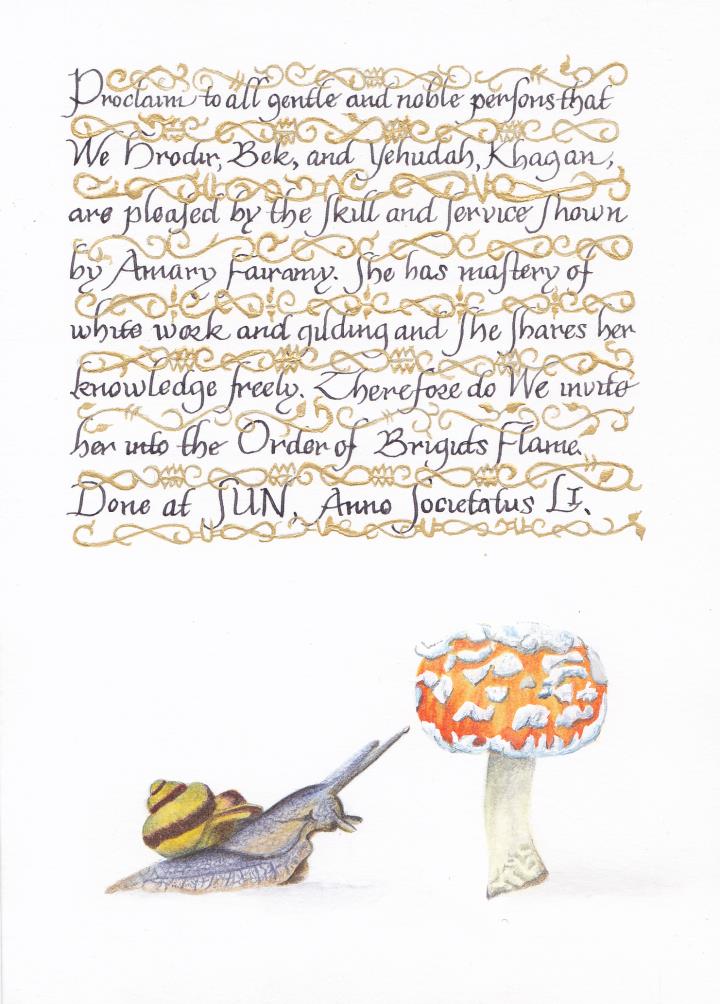 Proclaim to all gentle and noble perſons that
We Hrodir, Bek, and Yehudah, Khagan,
are pleaſed by the ſkill and ſervice ſhown
by Amary Fairamy. She has maſtery of
white work and gilding and ſhe ſhares her
knowledge freely. Therefore do We invite
her into the Order of Brigids Flame.
Done at SUN. Anno Societatus LI.